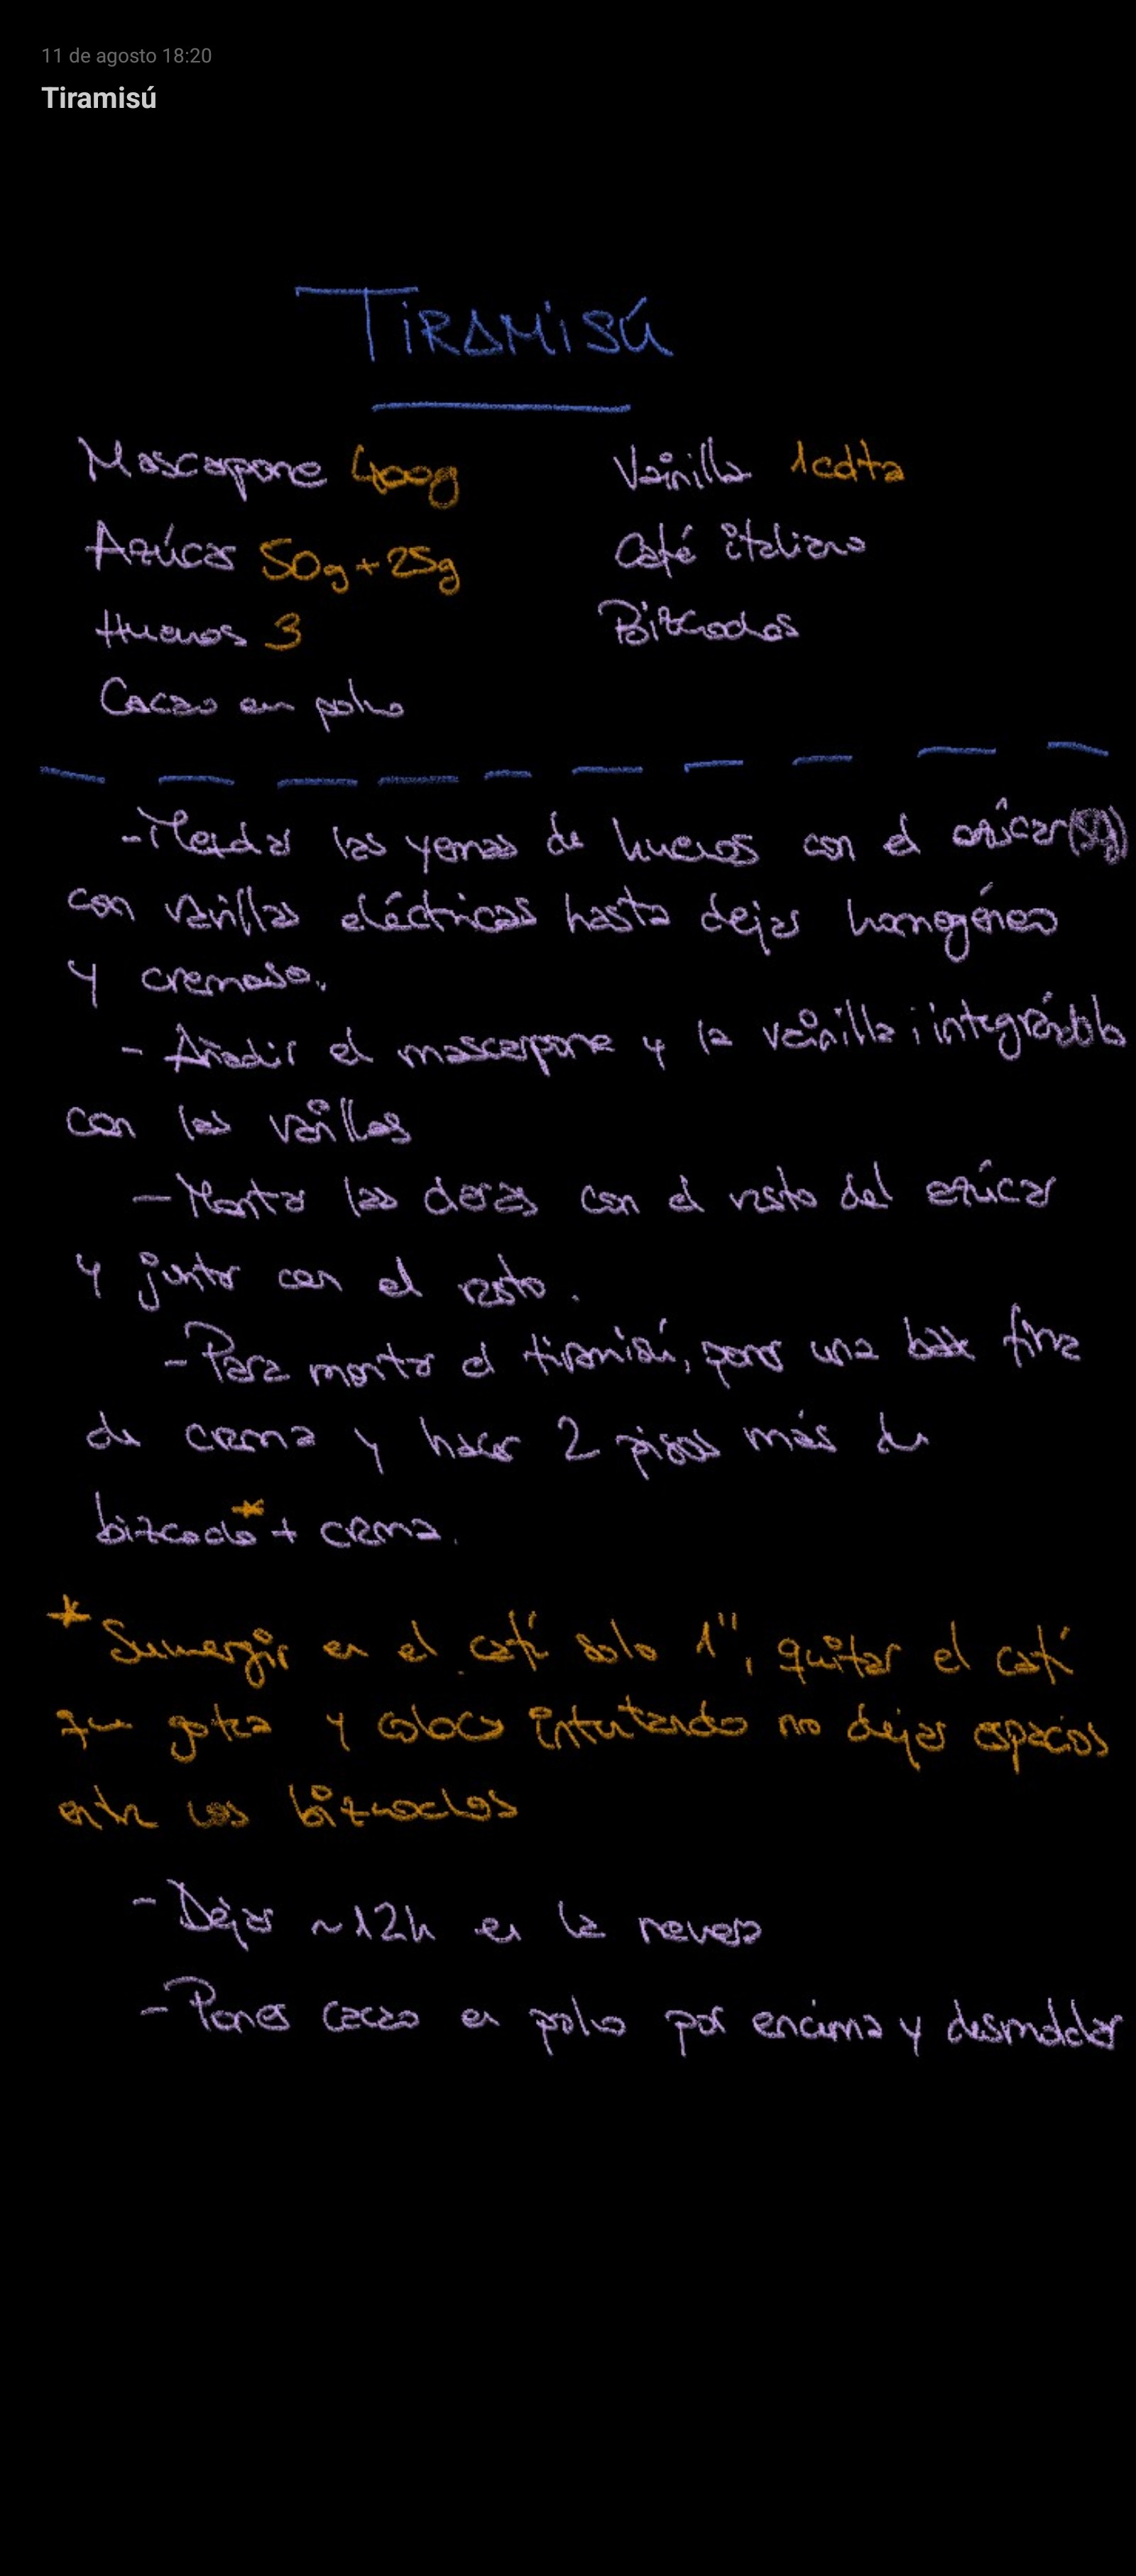 11 de agosto 18:20
Tiramisú
TiRAMiSÚ
Mascarpone 400g
Vainilla 1cdta
Azúcar 50g + 25g
Café italiano
Huevos 3
Bizcochos
Cacao en polvo
- Mezclar las yemas de huevos con el azúcar (50g)
con varillas eléctricas hasta dejar homogéneo
y cremoso.
- Añadir el mascarpone y la vainilla; integrándolo
con las varillas
- Montar las claras con el resto del azúcar
y juntar con el resto.
- Para montar el tiramisú, poner una base fina
de crema y hacer 2 pisos más de
bizcocho* + crema.
* Sumergir en el café solo 1", quitar el café
que gotea y colocar intentando no dejar espacios
entre los bizcochos
- Dejar ~12h en la nevera
- Poner cacao en polvo por encima y desmoldar